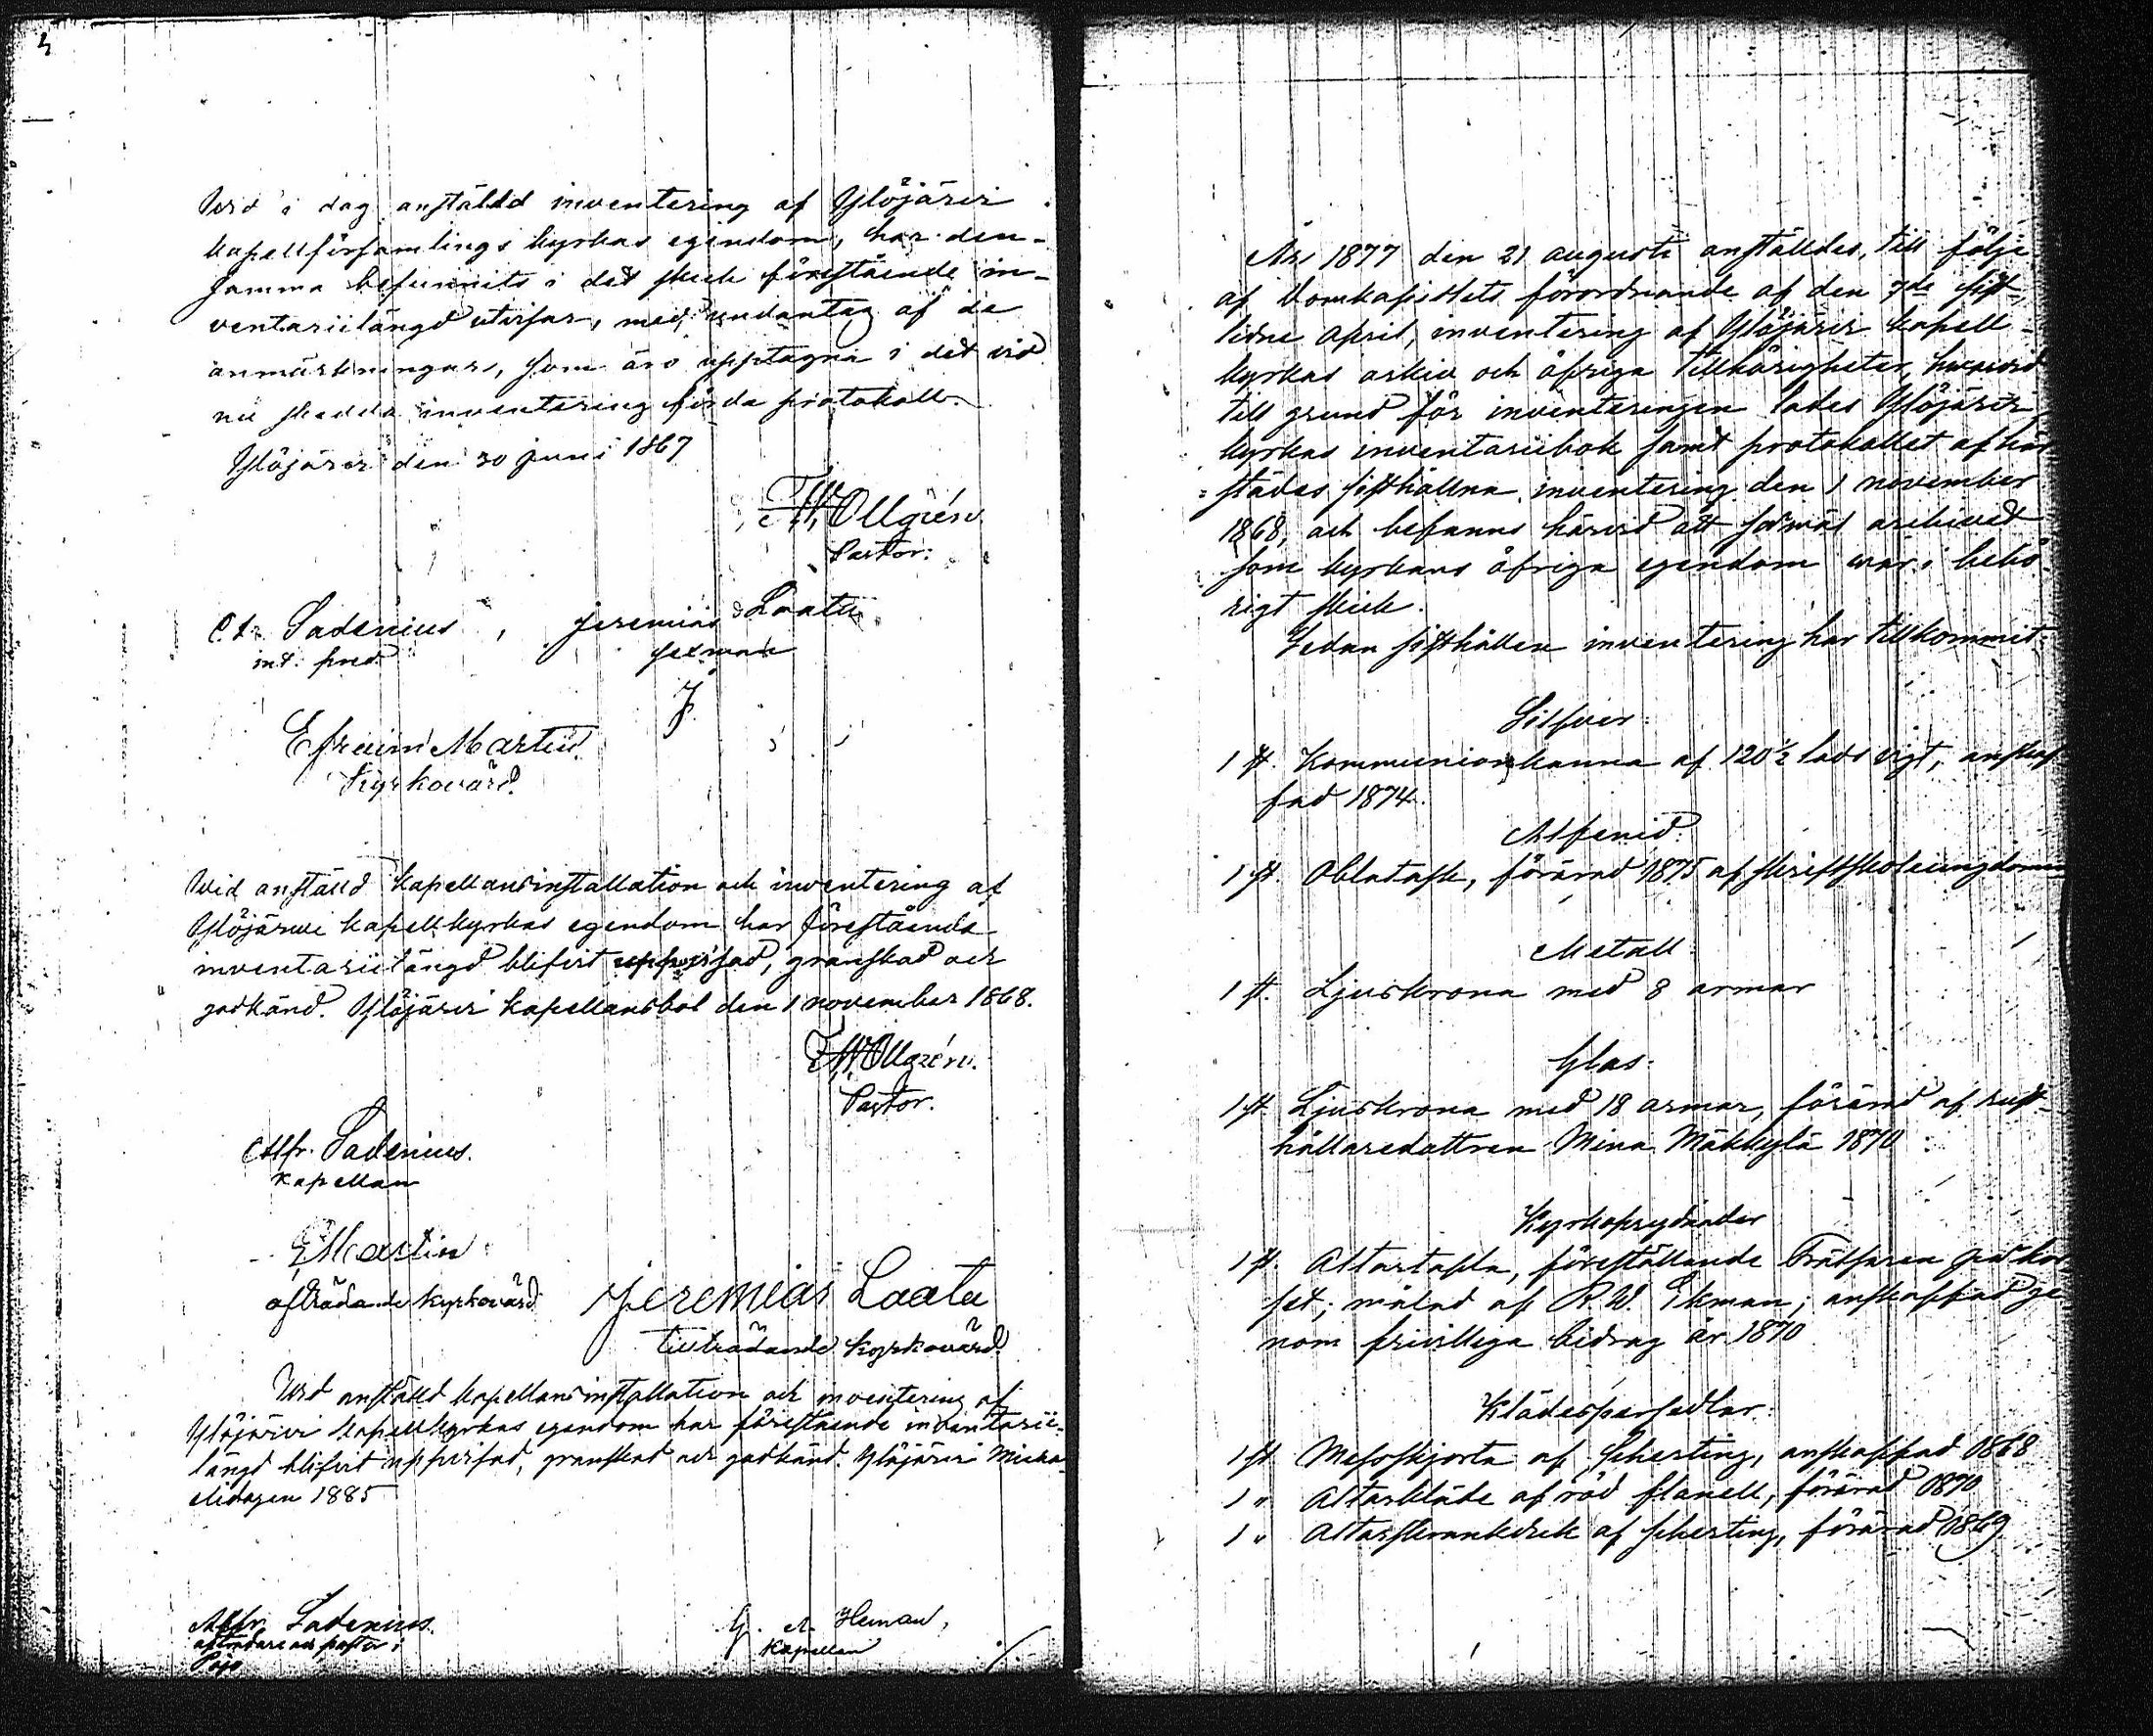 Wid i dag anstäld inventering af Ylöjärvi
kapellförsamlings kyrkas egendom, har den-
samma befunnits i det skick förestående in-
ventariilängd utvisar, med undantag af de
anmärkningar, som äro upptagna i det vid
nu skedda inventering förda protokoll.
Ylöjärvi den 30 juni 1867
F W Ollgrén
Pastor:
Sadenius, Jeremias Laatu
sexman
Efraim Martin
Kyrkovärd.
Wid anstäld kapellansinstallation och inventering af
Ylöjärwi kapellkyrkas egendom har förestående
inventariilängd blifvit uppvisad, granskad och
godkänd. Ylöjärvi kapellansbol den 1 november 1868.
F W Ollgrén.
Pastor.
Alfr. Sadenius.
Kapellan
E Martin
afträdande kyrkovärd Jeremias Laatu
tillträdande kyrkovärd
Wid anstäld kapellansinstallation och inventering af
Ylöjärvi kapellkyrkas egendom har förestående inventarii-
längd blifvit uppvisad, granskad och godkänd. Ylöjärvi Micha-
elidagen 1885
Alfr. Sadenius. G. A. Heman,
afträdare och pastor i Kapellan
Pojo
År 1877 den 21 augusti anstäldes, till följe
af Domkapitlets förordnande af den 7de sist-
lidne April, inventering af Ylöjärvi kapell-
kyrkas arkiv och öfriga tillhörigheter, hvarvid
till grund för inventeringen lades Ylöjärvi
kyrkas inventariibok samt protokollet af här-
städes sisthållna inventering den 1 november
1868, och befanns härvid att såväl archivet
som kyrkans öfriga egendom var i behö-
rigt skick.
Sedan sisthållen inventering har tillkommit:
Silfver:
1 st. Kommunionkanna af 120½ lods vigt, anskaf-
fad 1874.
Alfenid:
1 st. Oblatask, förärad 1875 af skriftskoleungdomen
Metall:
1 st. Ljuskrona med 8 armar
Glas:
1 st. Ljuskrona med 18 armar, förärad af rust-
hållaredottren Mina Mäkkylä 1870
Kyrkoprydnader
1 st. Altartafla, föreställande Frälsaren på kor-
set; målad af R. W. Ekman; anskaffad ge-
nom frivilliga bidrag år 1870
Klädespersedlar:
1 st. Messoskjorta af scherting, anskaffad 1868
1 " Altarkläde af röd flanell, förärad 1870
1 " Altarskrankdrik af scherting, förärad 1869